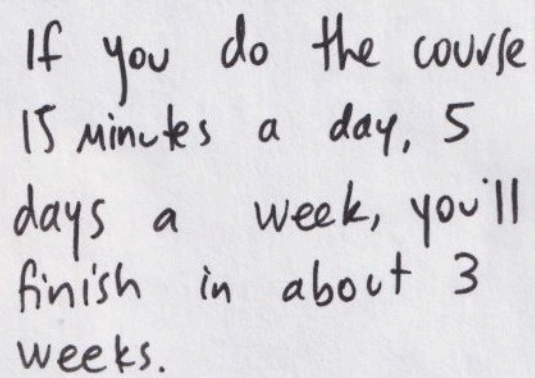 If you do the course
15 minutes a day, 5
days a week, you'll
finish in about 3
weeks.